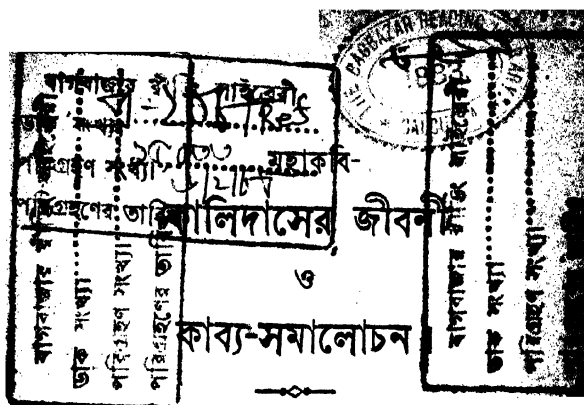 THE BAGBAZAR READING LIBRARY
বাগবাজার রীডিং লাইব্রেরী
ডাক সংখ্যা
পরিগ্রহণ সংখ্যা
পরিগ্রহণের তারিখ
মহাকবি-
কালিদাসের জীবনী
ও
কাব্য-সমালোচন
বাগবাজার রীডিং লাইব্রেরী
ডাক সংখ্যা
পরিগ্রহণ সংখ্যা
পরিগ্রহণের তারিখ
বাগবাজার রীডিং লাইব্রেরী
ডাক সংখ্যা
পরিগ্রহণ সংখ্যা